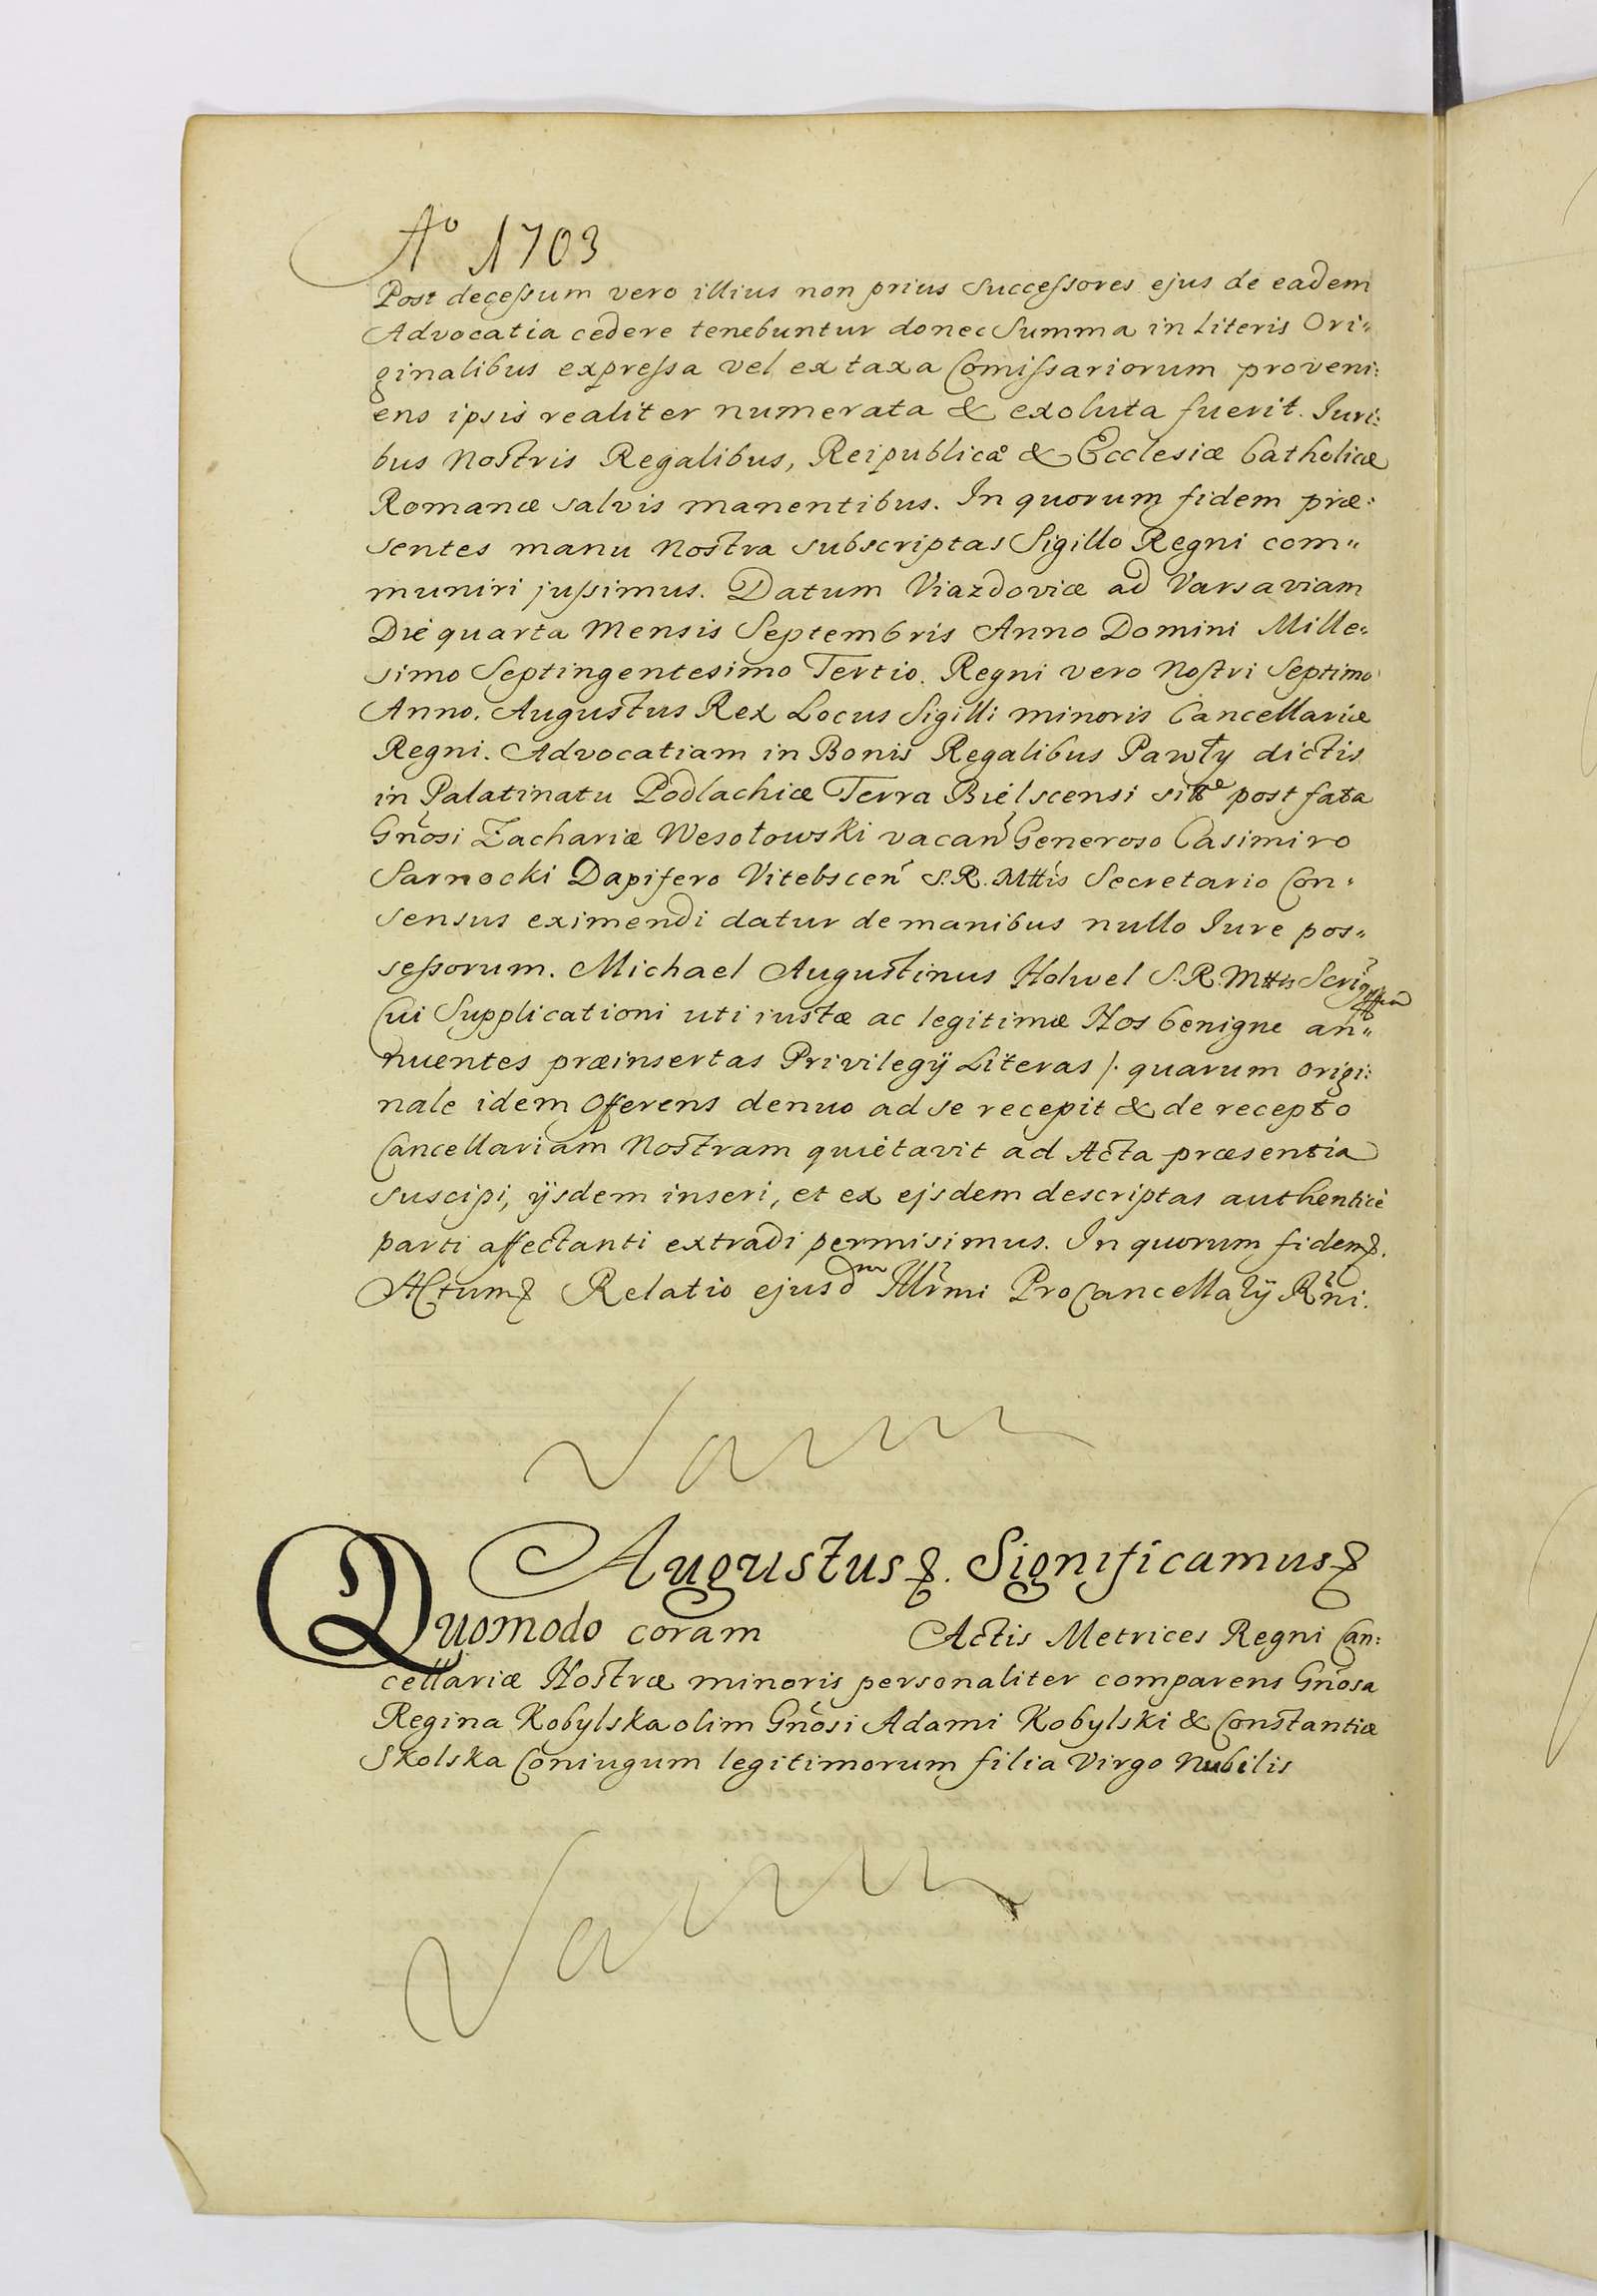 Aº 1703
Post decessum vero illius non prius Successores ejus de eadem
Advocatia cedere tenebuntur donec Summa in Literis Ori=
ginalibus expressa vel ex taxa Comissariorum proveni:
ens ipsis realiter numerata & exoluta fuerit. Iuri:
bus Nostris Regalibus, Reipublicæ & Ecclesiæ Catholicæ
Romanæ salvis manentibus. In quorum fidem præ:
sentes manu nostra subscriptas Sigillo Regni com=
muniri jussimus. Datum Viazdoviæ ad Varsaviam
Die quarta Mensis Septembris Anno Domini Mille=
simo Septingentesimo Tertio. Regni vero Nostri Septimo
Anno. Augustus Rex Locus Sigilli minoris Cancellariæ
Regni. Advocatiam in Bonis Regalibus Pawły dictis
in Palatinatu Podlachiæ Terra Bielscensi post fata
Gñosi Zachariæ Wesołowski vacañ Generoso Casimiro
Sarnocki Dapifero Vitebsceñ S.R.Mttis Secretario Con=
sensus eximendi datur de manibus nullo Iure pos=
sessorum. Michael Augustinus Holwel S.R.Mttis
Cui Supplicationi uti iustæ ac legitimæ Nos benigne an=
nuentes præinsertas Privilegÿ Literas /. quarum origi:
nale idem Offerens denuo ad se recepit & de recepto
Cancellariam Nostram quietavit ad Acta præsentia
suscipi, ÿsdem inseri, et ex ejsdem descriptas authenticè
parti affectanti extradi permisimus. In quorum fidem&.
Actum& Relatio ejusdm Illrmi ProCancellarÿ Rñi.
Augustus&. Significamus&
Quomodo coram Actis Metrices Regni Can:
cellariæ Nostræ minoris personaliter comparens Gñosa
Regina Kobylska olim Gñosi Adami Kobylski & Constantiæ
Skolska Coniugum legitimorum filia Virgo Nubilis